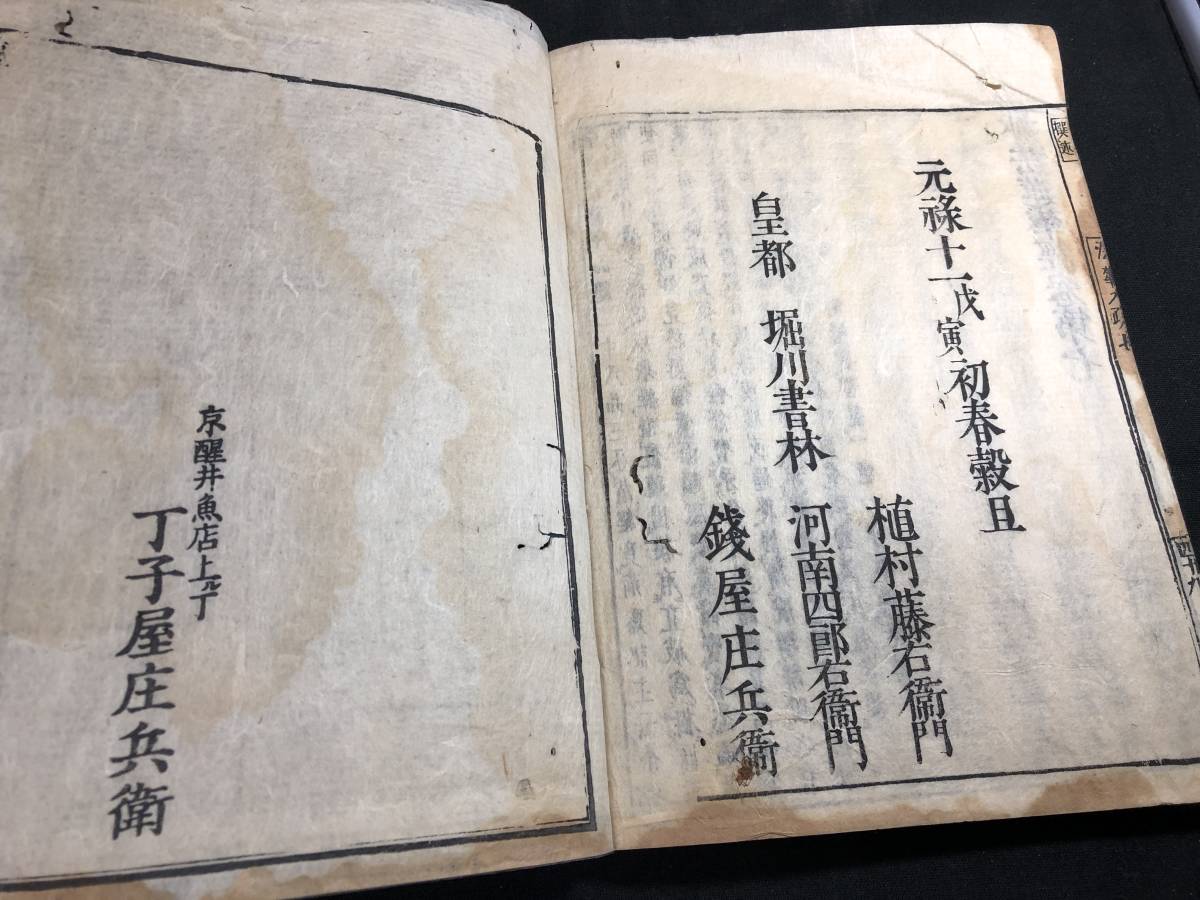 元祿十一戊寅初春穀旦
植村藤右衞門
皇都 堀川書林 河南四郎右衞門
錢屋庄兵衞
京醒井魚店上ル丁
丁子屋庄兵衛